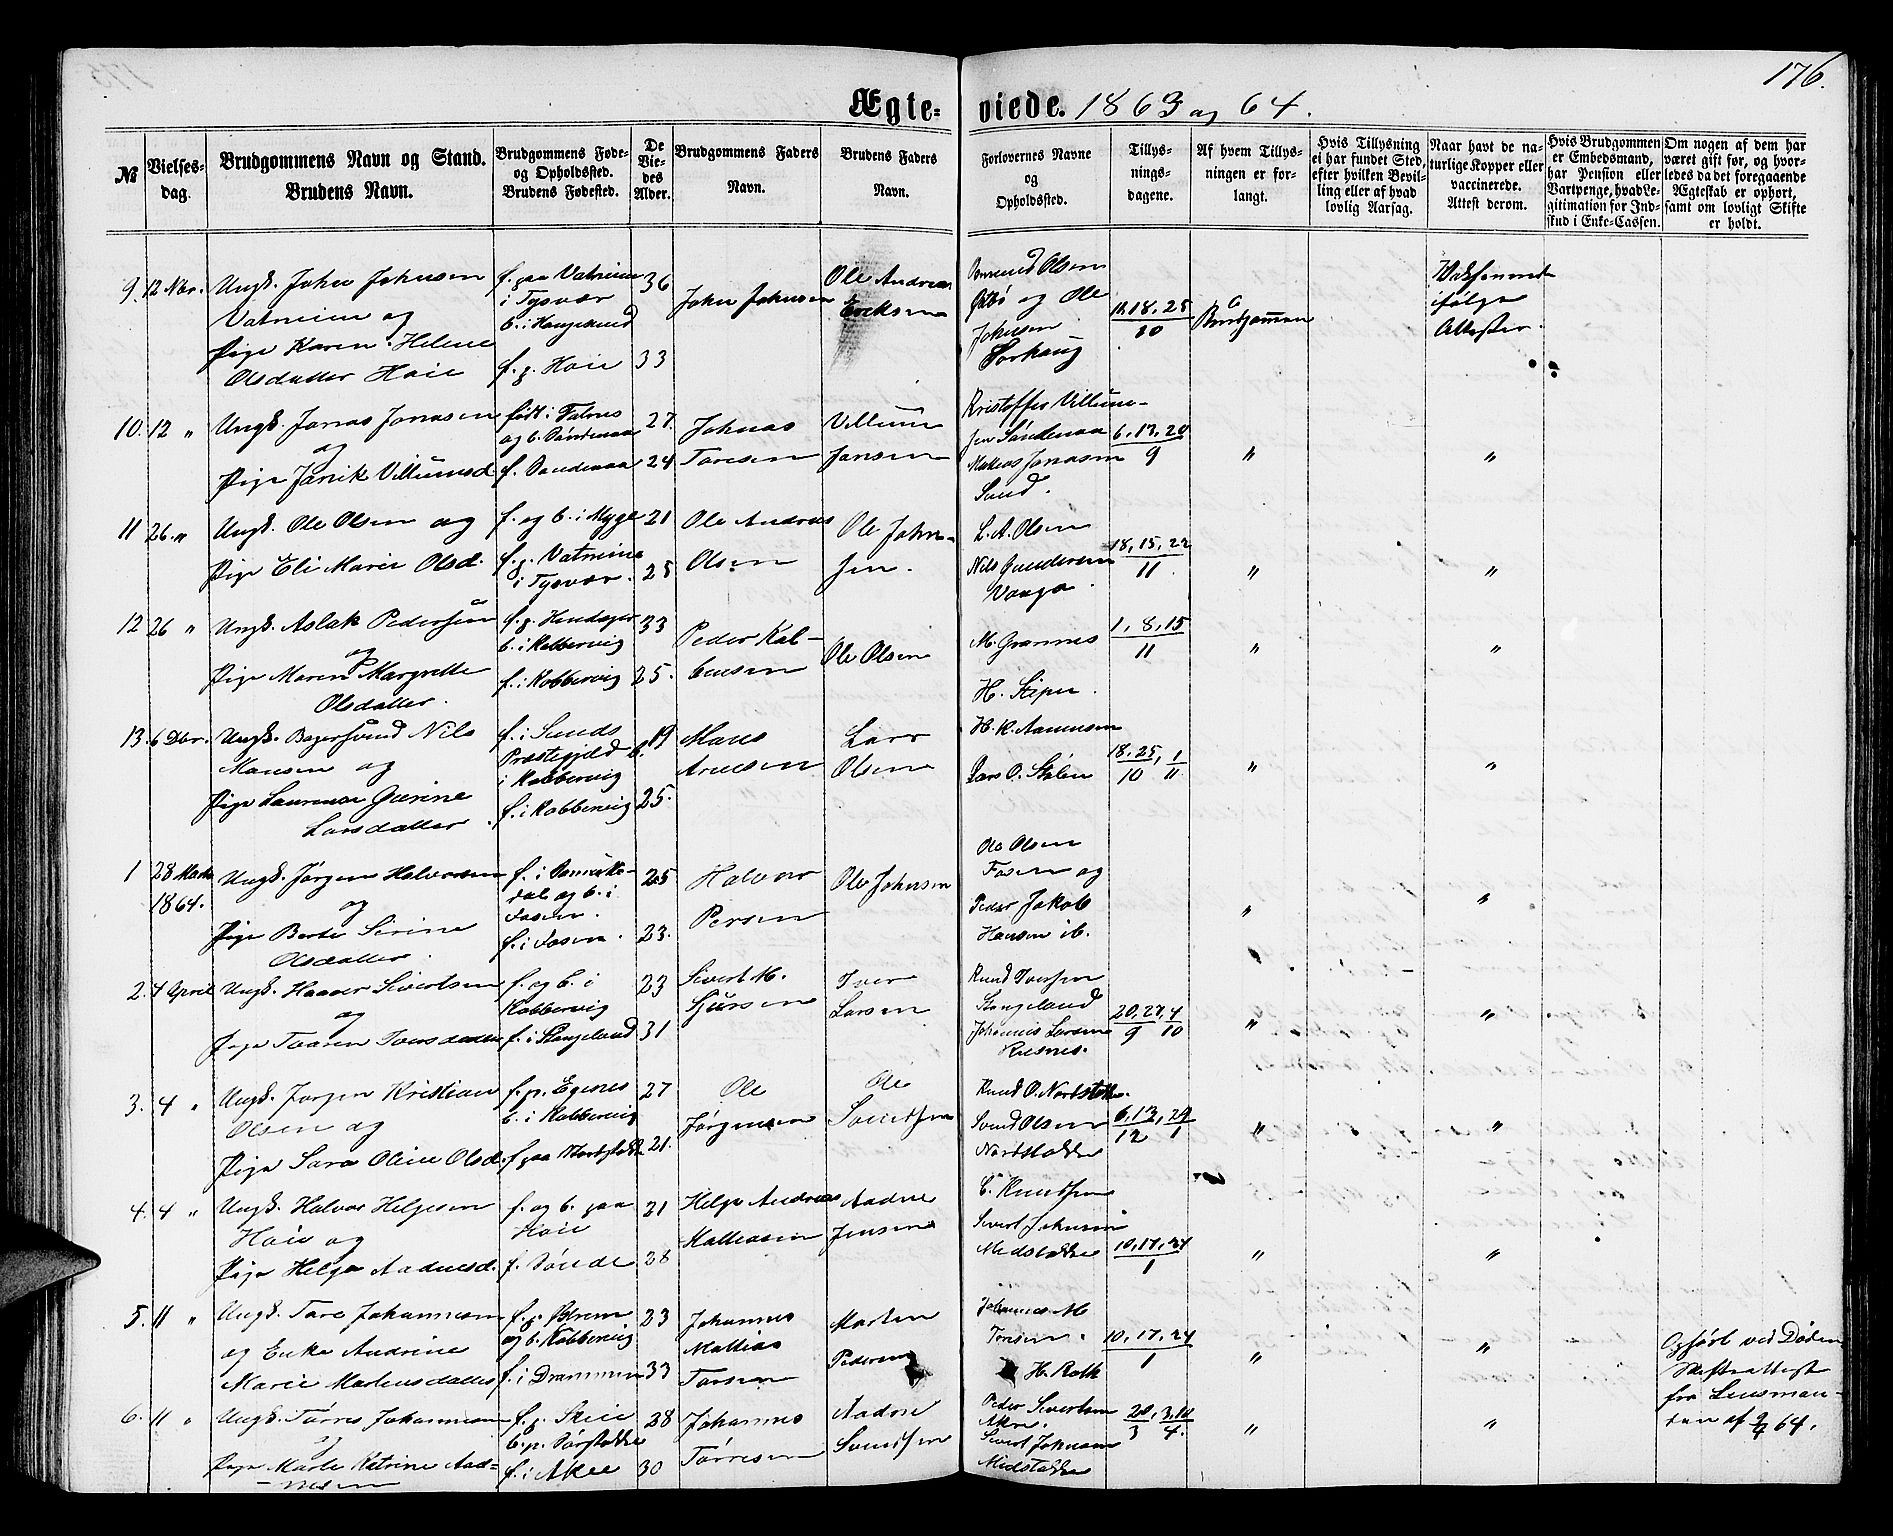 176.
Ægte-viede. 1863 og 64.
№
Vielses-dag.
Brudgommens Navn og Stand.
Brudens Navn.
Brudgommens Føde- og Opholdssted.
Brudens Fødested.
De Viedes Alder.
Brudgommens Faders Navn.
Brudens Faders Navn.
Forlovernes Navne og Opholdssted.
Tillysningsdagene.
Af hvem Tillysningen er forlangt.
Hvis Tillysning ei har fundet Sted, efter hvilken Bevilling eller af hvad lovlig Aarsag.
Naar havt de naturlige Kopper eller vaccinerede. Attest derom.
Hvis Brudgommen er Embedsmand, har Pension eller Vartpenge, hvad Legitimation for Indskud i Enke-Cassen.
Om nogen af dem har været gift før, og hvorledes da det foregaaende Ægteskab er ophørt, samt om lovligt Skifte er holdt.
9. 12 Nbr. Ungk. John Johnsen f. paa Vatneim 36 John Johnsen Ole Andreas Olsen
Vatneim og i Tysvær Eriksen og Ole 11, 18, 25 / 10 Brudgommen
b. i Haugesund Johnsen
Pige Karen Helene Sørhaug
Olsdatter Høie f. p. Høie 33
Attester.
10. 12 " Ungk. Jonas Jonasen født i Falnes 27 Johnas Villum Kristoffer Villum-
og og b. Søndenaa Toresen Jansen sen Søndenaa 6, 13, 20 / 9 " "
Pige Janik Villumsd. f. Søndenaa 24 Mathias Jonasen
Sund.
11 26 " Ungk. Ole Olsen og f. og b. i Myge 21 Ole Andreas Ole John- L. A. Olsen
Pige Eli Marie Olsd. f. p. Vatneim Olsen sen. Nils Gundersen 18, 15, 22 / 11 " "
i Tysvær. 25 Vaaga.
12 26 " Ungk. Aslak Pedersen 33 Peder Kol- Ole Olsen M. Grønnes 1, 8, 15 / 11 " "
og b. i Kobbervig bensen
Pige Maren Margrette f. i Kobbervig 25. H. Steper.
Olsdatter.
13. 6 Dbr. Ungk. Nils f. i Sunds 19 Mons Lars H. K. Aanensen
Monsen og Præstegjeld Arnesen Olsen Lars O. Stølen 18, 25 / 10, 1 / 11 " "
i Kobbervig
Pige Laurense Gurine f. i Kobbervig 25.
Larsdatter.
1 28 Marts Ungk. Jørgen Halvorsen 25 Halvor Ole Johnsen Ole Olsen
1864. og dal og b. i Persen Fosen og
Fosen. Peder Jakob " "
Pige Berte Serine f. i Fosen. 23. Hansen ib.
Olsdatter.
2. 4 April Ungk. Haaver Sivertsen f. og b. i 23 Sivert M. Iver Knud Iversen
og Kobbervig Sjursen Larsen Stangeland 20, 27 / 9, 4 / 10 " "
Pige Taaren Iversdatter f. i Stangeland 31 Johannes Larsen
Risnes.
3. 4 " Ungk. Jørgen Kristian f. p. Egenes 27 Ole Ole Knud O. Nordstokke.
Olsen og b. i Kobbervig Jørgensen Svendsen Svend Olsen 6, 13 / 12, 24 / 1 " "
Pige Sara Oline Olsd. f. paa Nordstokke 21. Nordstokke
4. 4 " Ungk. Halvor Helgesen f. og b. paa 21 Helge Andreas Aadne E. Knutsen
Høie og Høie Mathiasen Jensen Sivert Johnsen
Pige Helga Aadnesd. 28 Midstokke 10, 17, 24 / 1 " "
5. 11 " Ungk. Tore Johannesen 23 Johannes Morten Johannes M.
og Enke Andrine og b. Kobbervig Mathias Pedersen Toresen. 10, 17, 24 / 1 " " Ophørt ved Døden
Marie Mortensdatter f. i Drammen 33 Toresen H. Roth Skifteattest
fra Lensman-
den af 2/4 64.
6. 11 " Ungk. Tørres Johannesen f. p. Skeie 28 Johannes Aadne Peder Sivertsen
og b. p. Sørstokke Tørresen Svendsen Akre. 20 / 3, 3, 10 / 4. " "
Pige Marte Katrine Aad- f. i Akre 30 Sivert Johnsen
nesen Midstokke